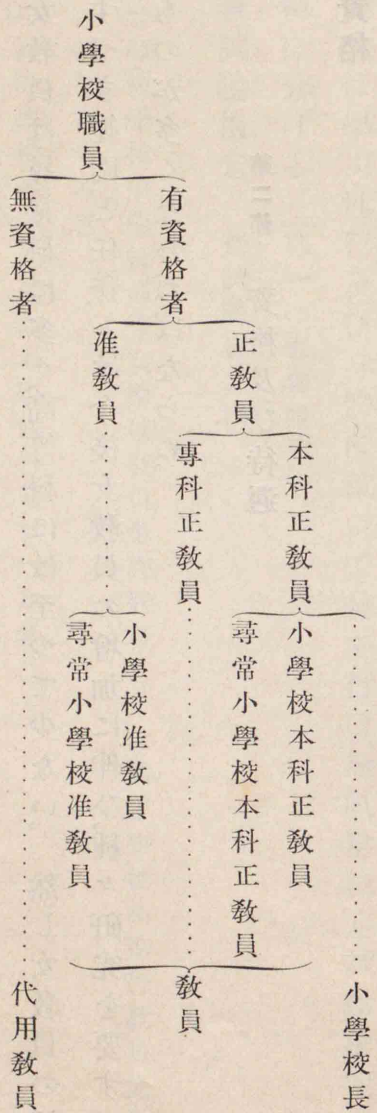 小學校職員
有資格者
無資格者
正教員
准教員
本科正教員
專科正教員
小學校長
小學校本科正教員
尋常小學校本科正教員
小學校准教員
尋常小學校准教員
教員
代用教員